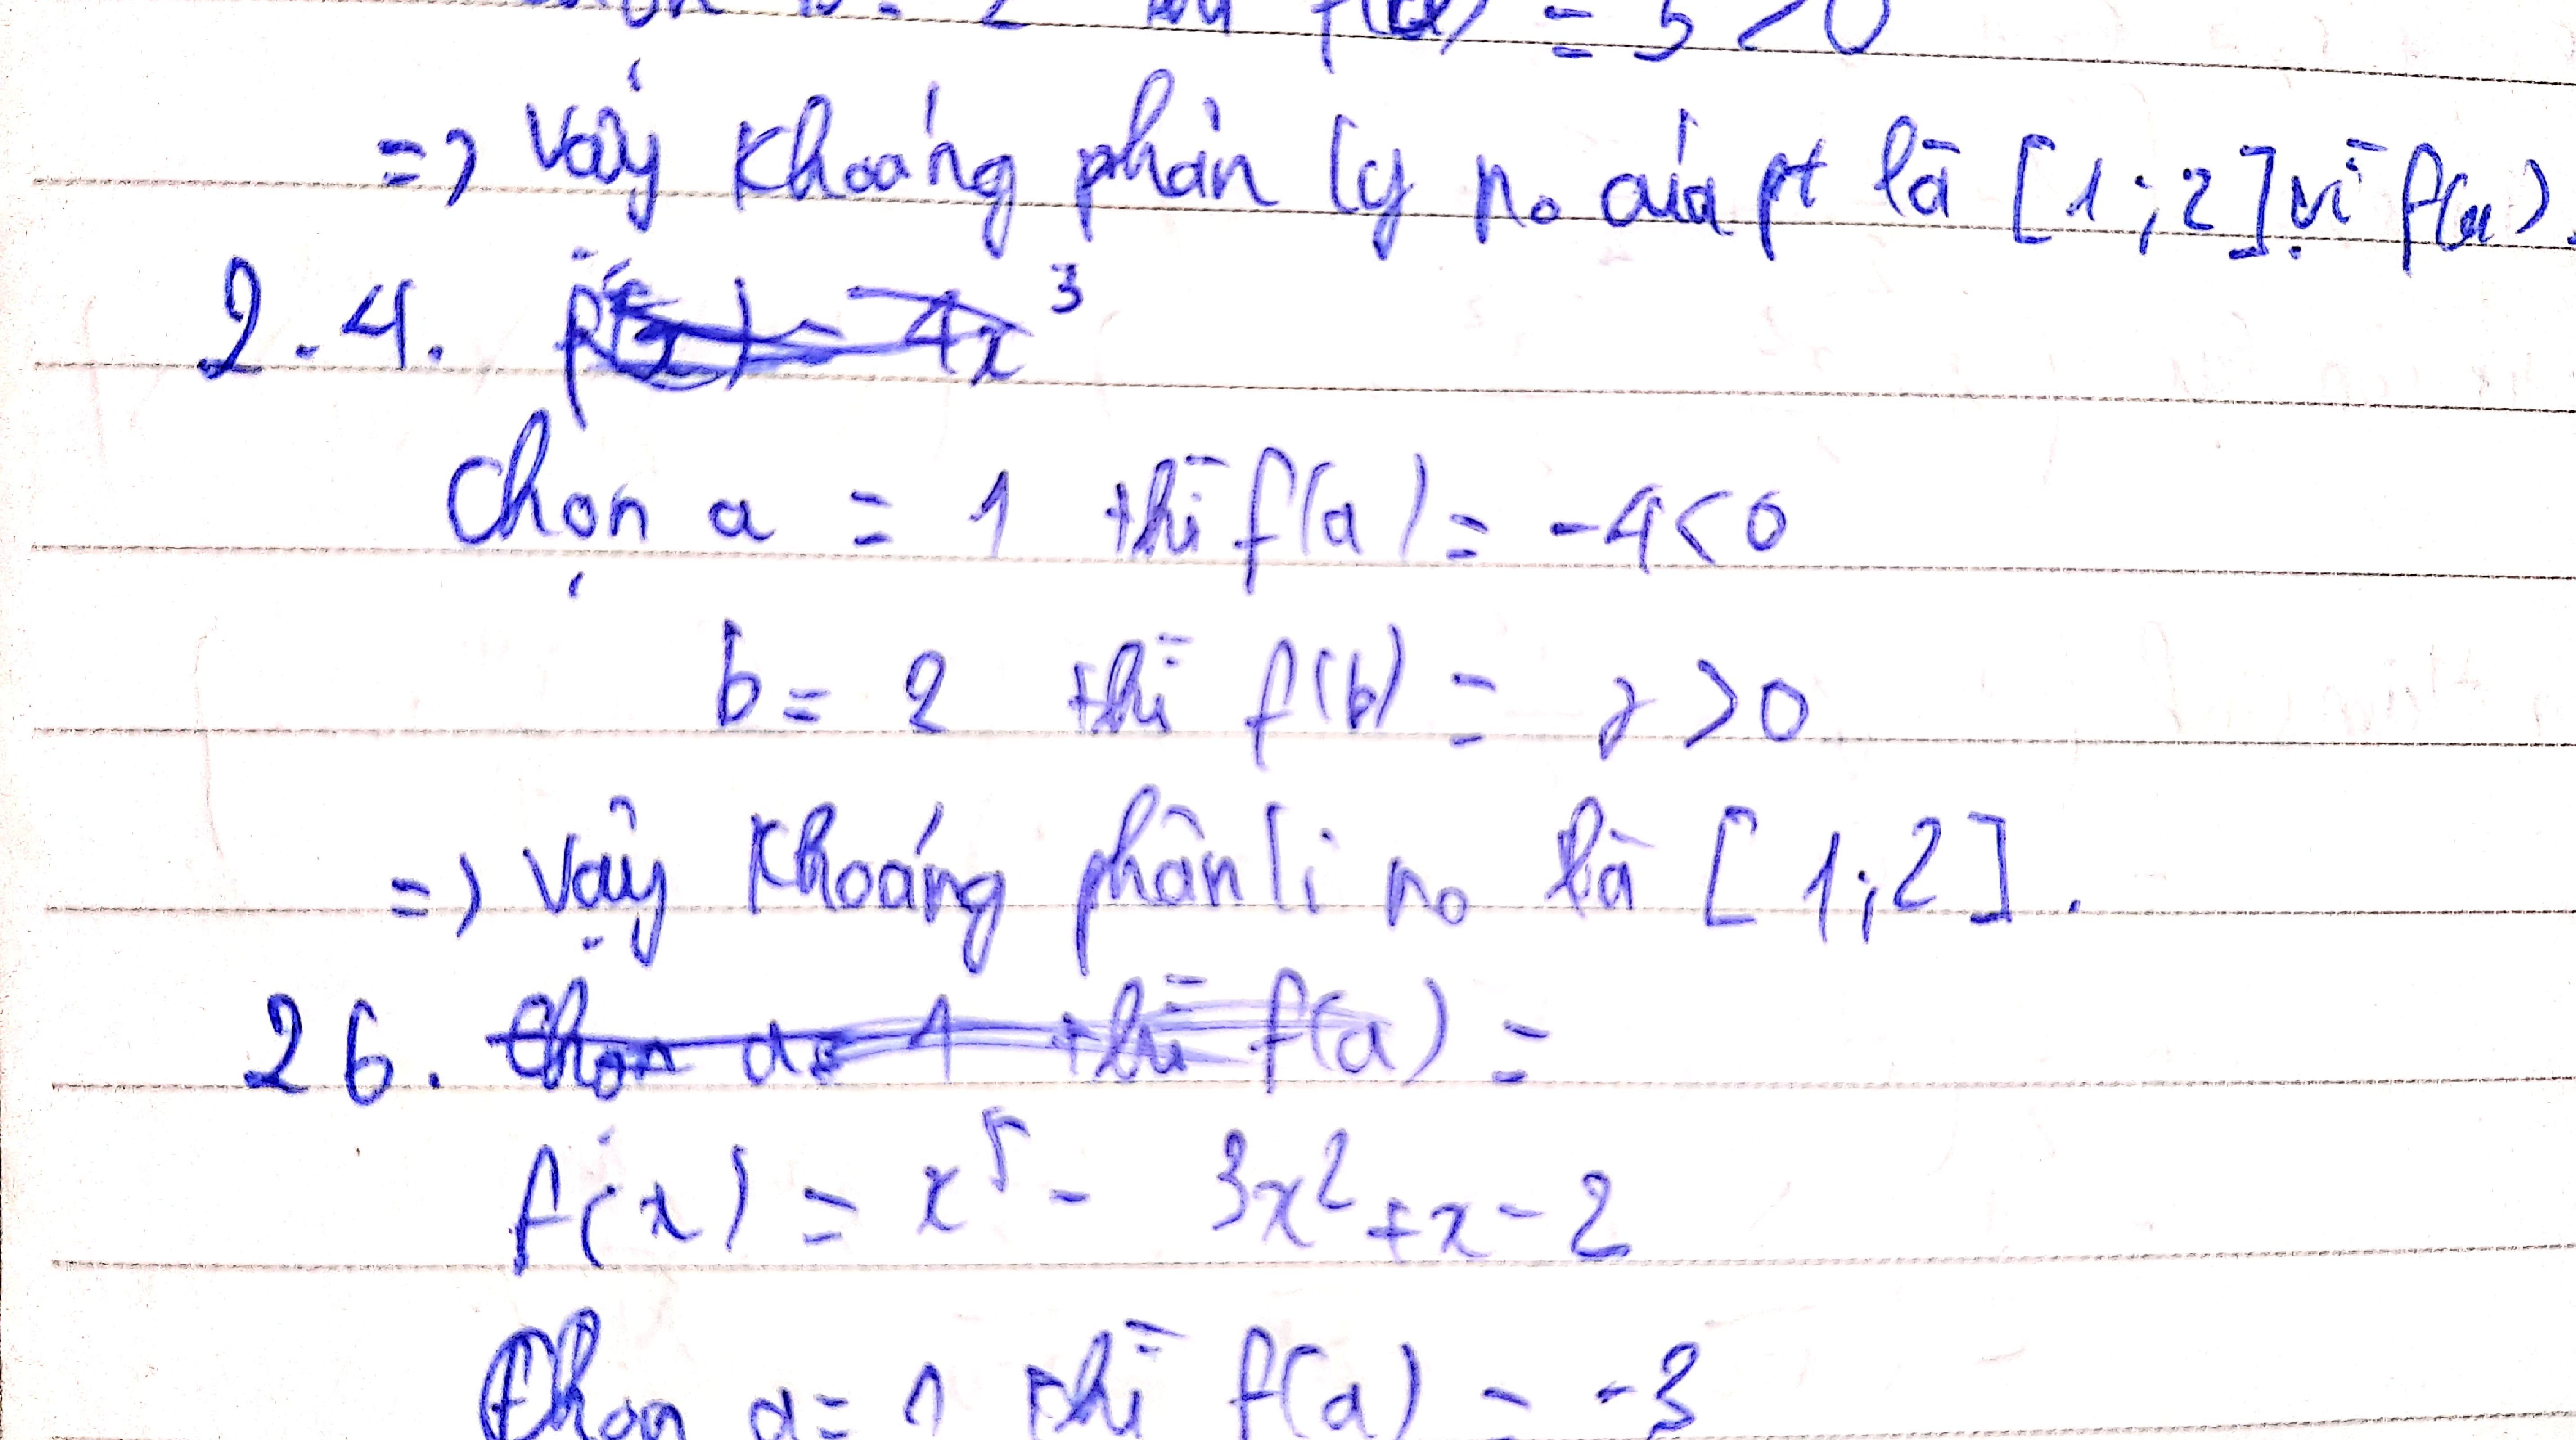 f(a) = 5 > 0
=> Vậy khoảng phân ly no của pt là [1;2] vì f(a).
2.4. f(x) = 4x³
Chọn a = 1 thì f(a) = -4 < 0
b = 2 thì f(b) = 2 > 0
=> Vậy khoảng phân li no là [1;2].
26. Chọn a = 1 thì f(a) =
f(x) = x⁵ - 3x² + x - 2
Chọn a = 1 thì f(a) = -3